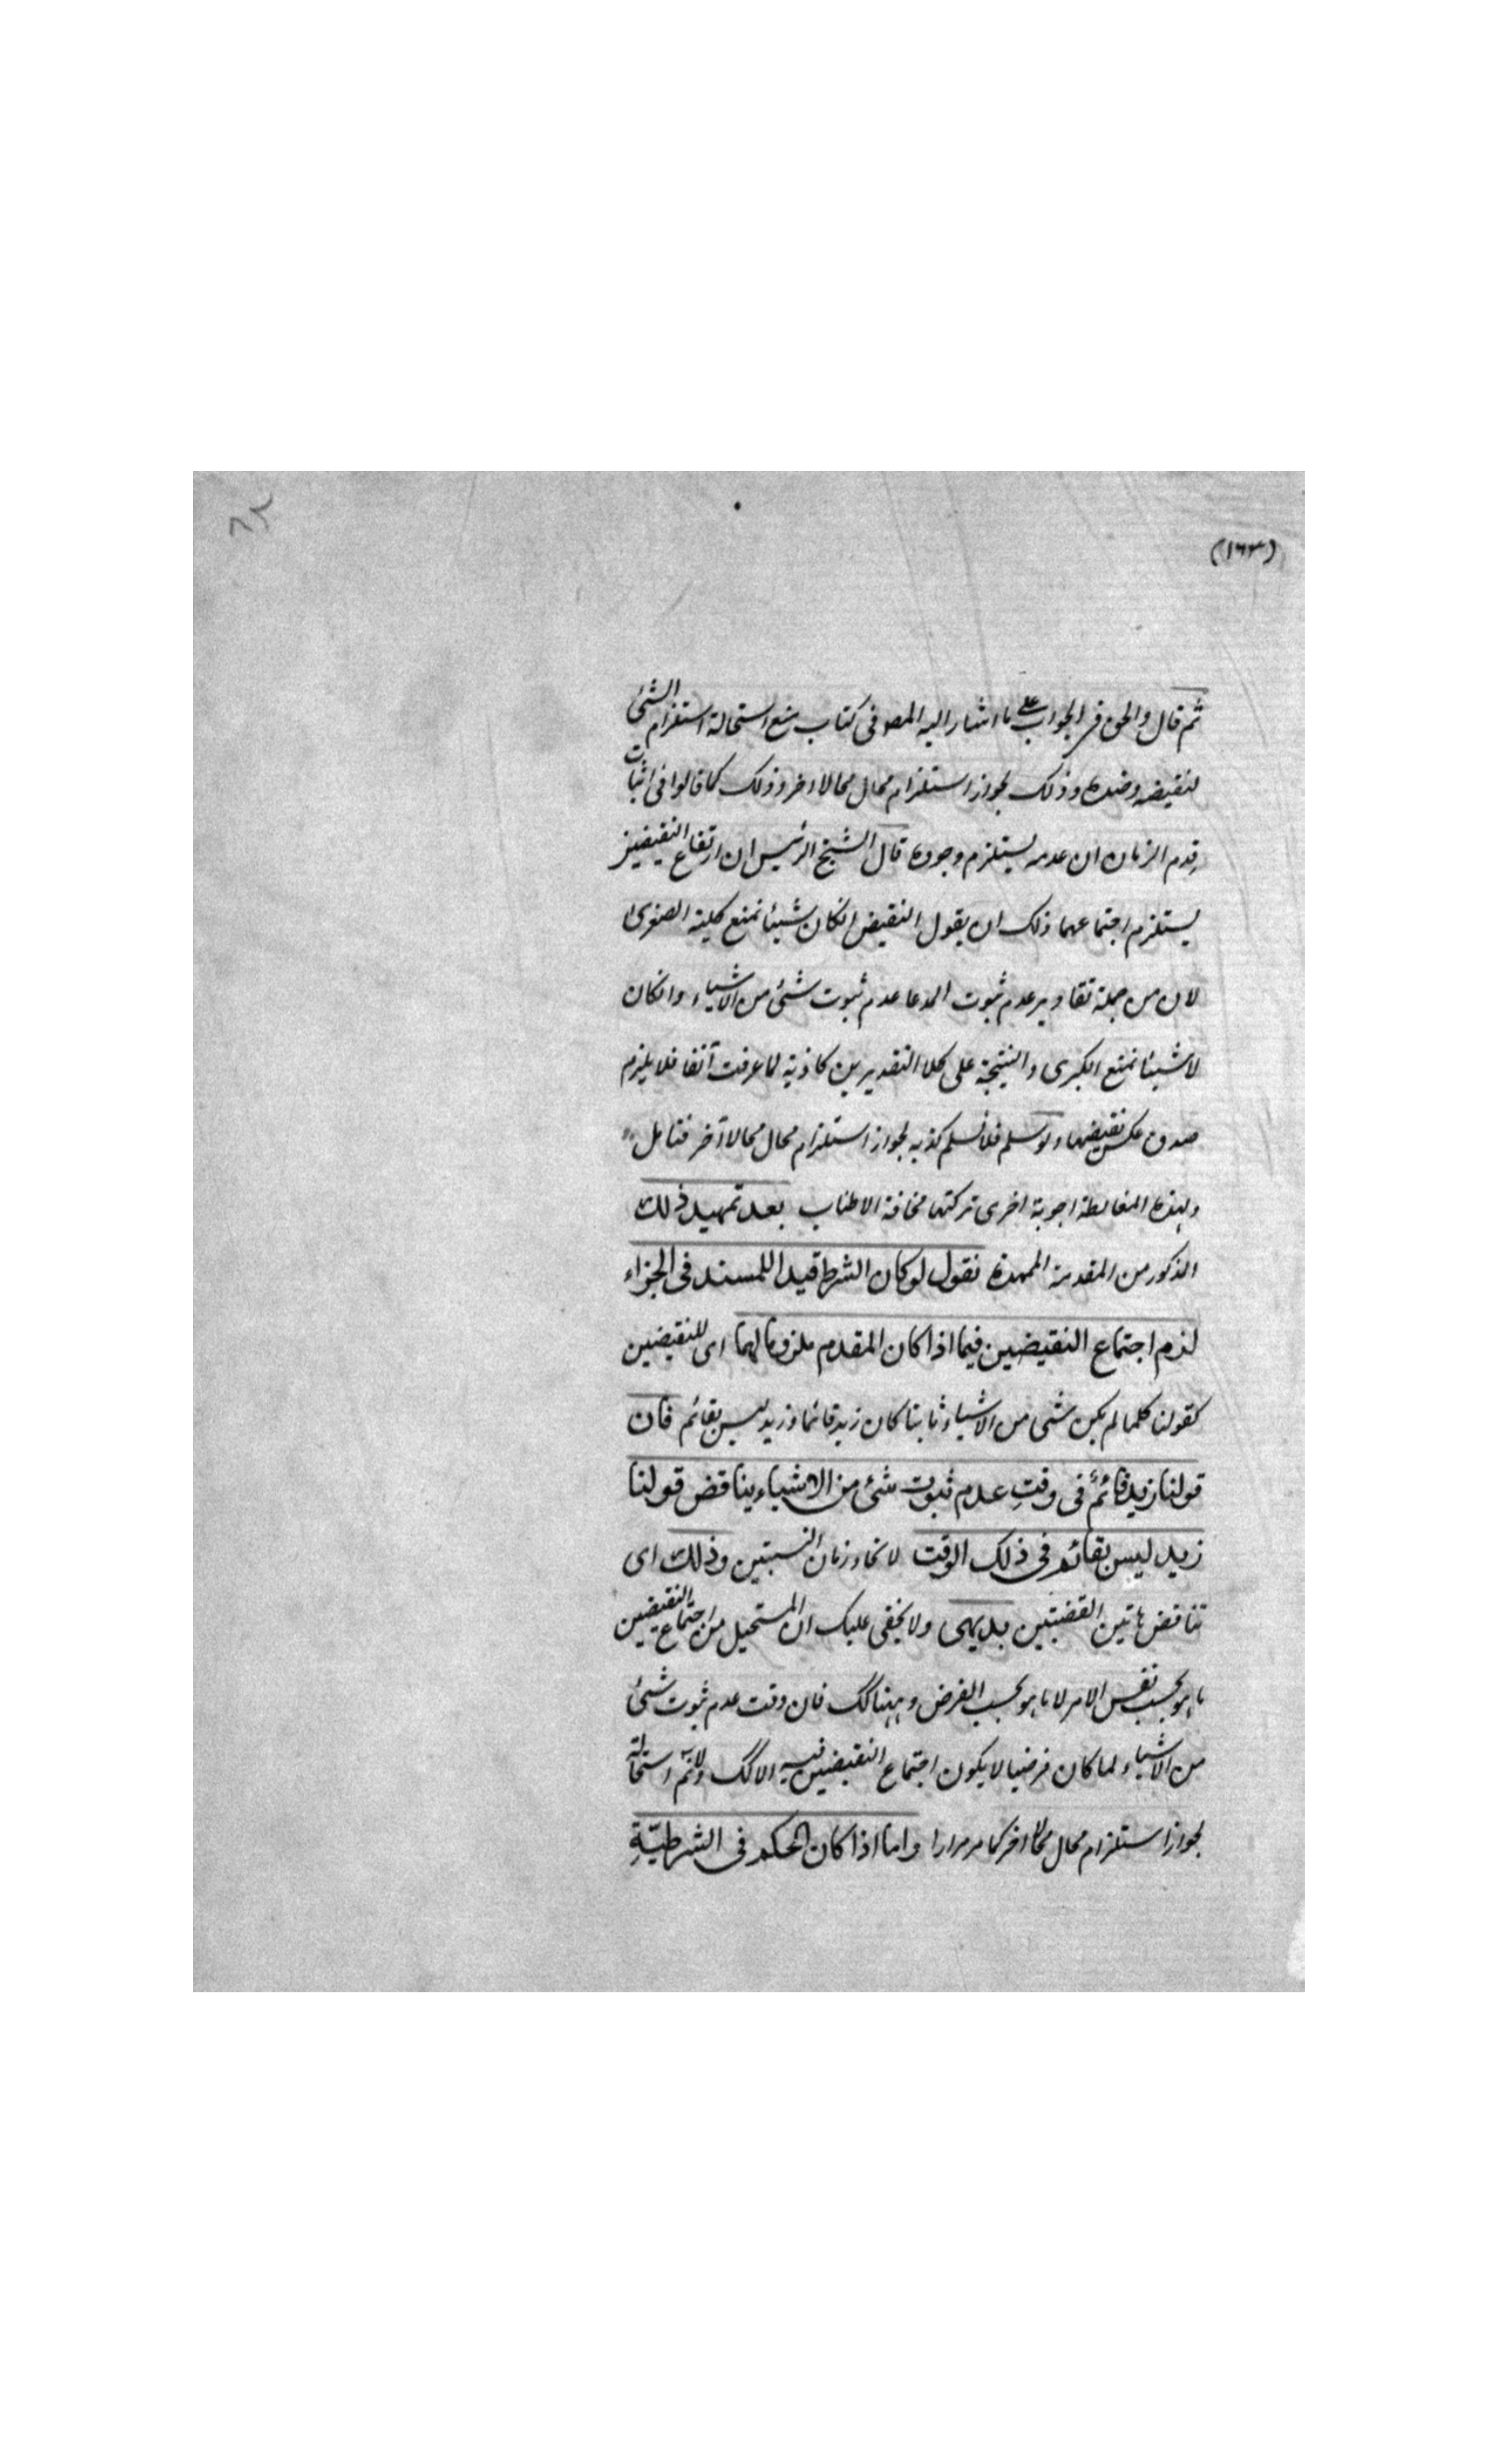 (١٦٣)
ثم قال والحق فى الجواب على ما اشار اليه المصـ فى كتاب منع استحالة استلزام الشئ
لنقيضه وضده وذلك لجواز استلزام محال محالا اخر وذلك كما قالوا فى اثبات
قدم الزمان ان عدمه يستلزم وجوده قال الشيخ الرئيس ان ارتفاع النقيضين
يستلزم اجتماعهما ذلك ان يقول النقيض انكان شيئا نمنع كلية الصغرى
لان من جملة تقادير عدم ثبوت المدعا عدم ثبوت شئ من الاشياء وانكان
لاشيئا نمنع الكبرى والنتيجة على كلا التقديرين كاذبة لما عرفت آنفا فلا يلزم
صدق عكس نقيضها ولو سلم فلا نسلم كذبه لجواز استلزام محال محالا آخر فتامل
ولهذه المغالطة اجوبة اخرى تركتها مخافة الاطناب بعد تمهيد ذلك
المذكور من المقدمة الممهدة نقول لو كان الشرط قيدا للمسند فى الجزاء
لزم اجتماع النقيضين فيما اذا كان المقدم ملزوما لهما اى للنقيضين
كقولنا كلما لم يكن شى من الاشياء ثابتا كان زيد قائما وزيد ليس بقائم فان
قولنا زيد قائمٌ فى وقتِ عدم ثبوت شئ من الاشياء يناقض قولنا
زيد ليس بقائم فى ذلك الوقت لاتحاد زمان النسبتين وذلك اى
تناقض هاتين القضيتين بديهى ولا يخفى عليك ان المستحيل من اجتماع النقيضين
ما هو بحسب نفس الامر لا ما هو بحسب الفرض وههنا كك فان وقت عدم ثبوت شئ
من الاشياء لما كان فرضيا لا يكون اجتماع النقيضين فيه الا كك ولانم استحالته
لجواز استلزام محال محالا اخر كما مر مرارا واما اذا كان الحكم فى الشرطيّةِ